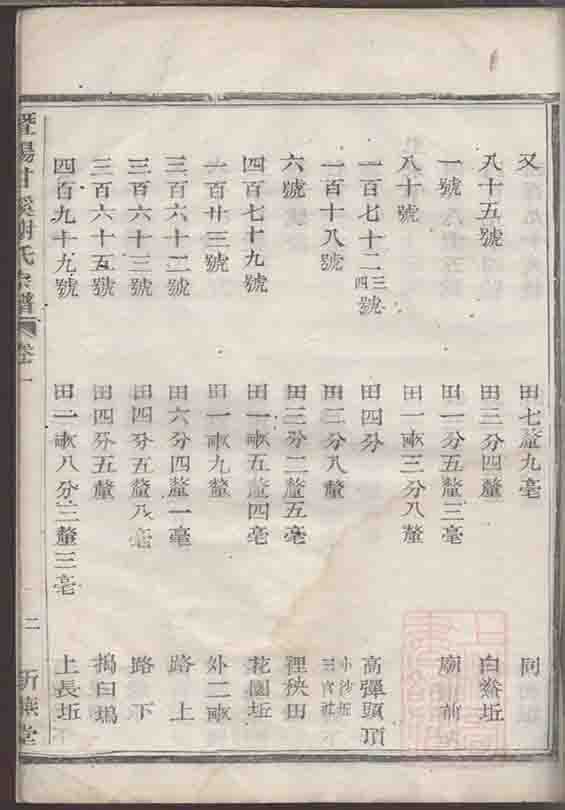 又 田七釐九毫 同
八十五號 田三分四釐 白 坵
一號 田一分五釐三毫 廟前
八十號 田一畝三分八釐
一百七十二三四號 田四分 高彈頭頂
一百十八號 田三分八釐 小沙坵
六號 田三分二釐五毫 裡秧田
四百七十九號 田一畝五釐四毫 花園坵
一百廿三號 田一畝九釐 外二畝
三百六十二號 田六分四釐一毫 路上
三百六十三號 田四分五釐八毫 路下
三百六十五號 田四分五釐 搗臼塢
四百九十九號 田一畝八分三釐三毫 上長坵
暨陽甘溪謝氏宗譜 卷一 二